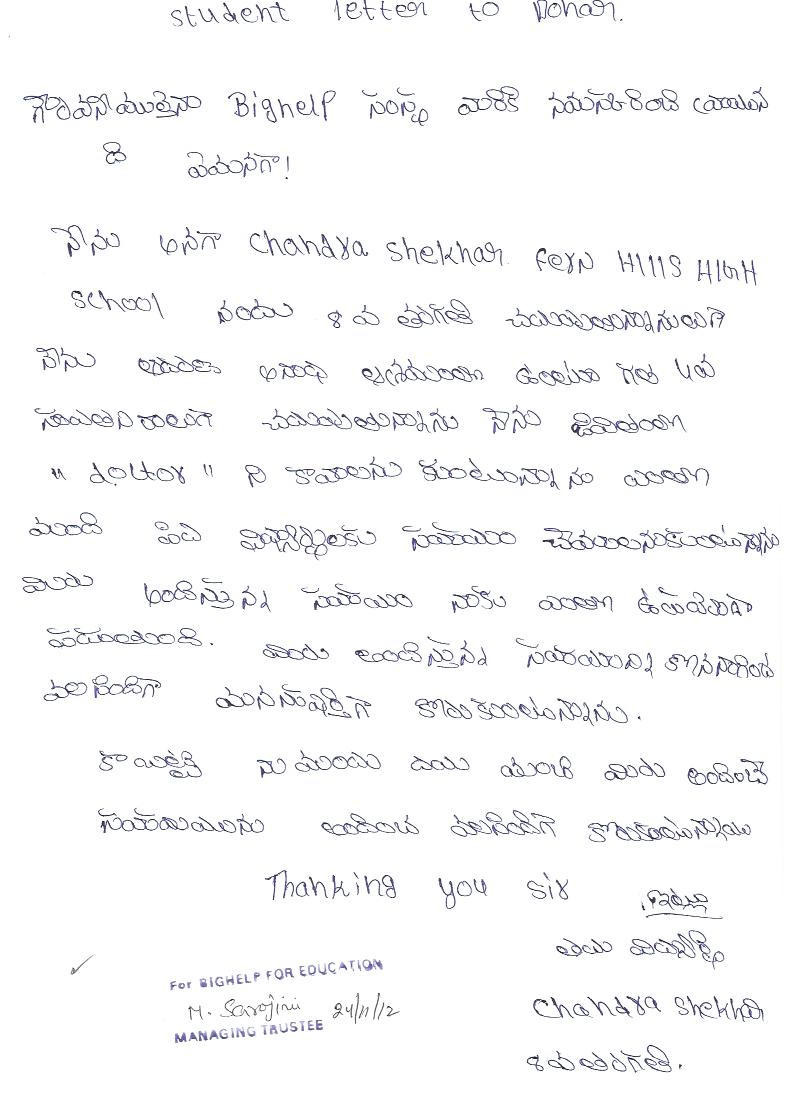 student letter to Donar.
గౌరవనీయులైన Bighelp సంస్థ వారికి నమస్కరించి వ్రాయున
ది ఏమనగా!
నేను అనగా Chandra Shekhar Fern Hills HIGH
School నందు 8 వ తరగతి చదువుతున్నాను
నేను అనాధ ఆశ్రమంలో ఉంటూ గత
చదువుతున్నాను నేను జీవితంలో
" doctor " ని కావాలను కుంటున్నాను ఎంతో
మంది పేద విద్యార్థులకు సహాయం చేయాలనుకుంటున్నాను
మీరు అందిస్తున్న సహాయం నాకు ఎంతో ఉపయోగ
పడుతుంది. మీరు అందిస్తున్న సహాయన్ని కొనసాగించ
వలసిందిగా మనస్పూర్తిగా కోరుకుంటున్నాను.
కాబట్టి నా మందు దయ యుంచి మీరు అందించే
సహాయమును అందించ వలసిందిగా కోరుకుంటున్నాను
Thanking you sir
ఇట్లు
తమ విద్యార్థి
Chandra Shekhar
8వ తరగతి.
For BIGHELP FOR EDUCATION
M. Sarojini 24/11/12
MANAGING TRUSTEE